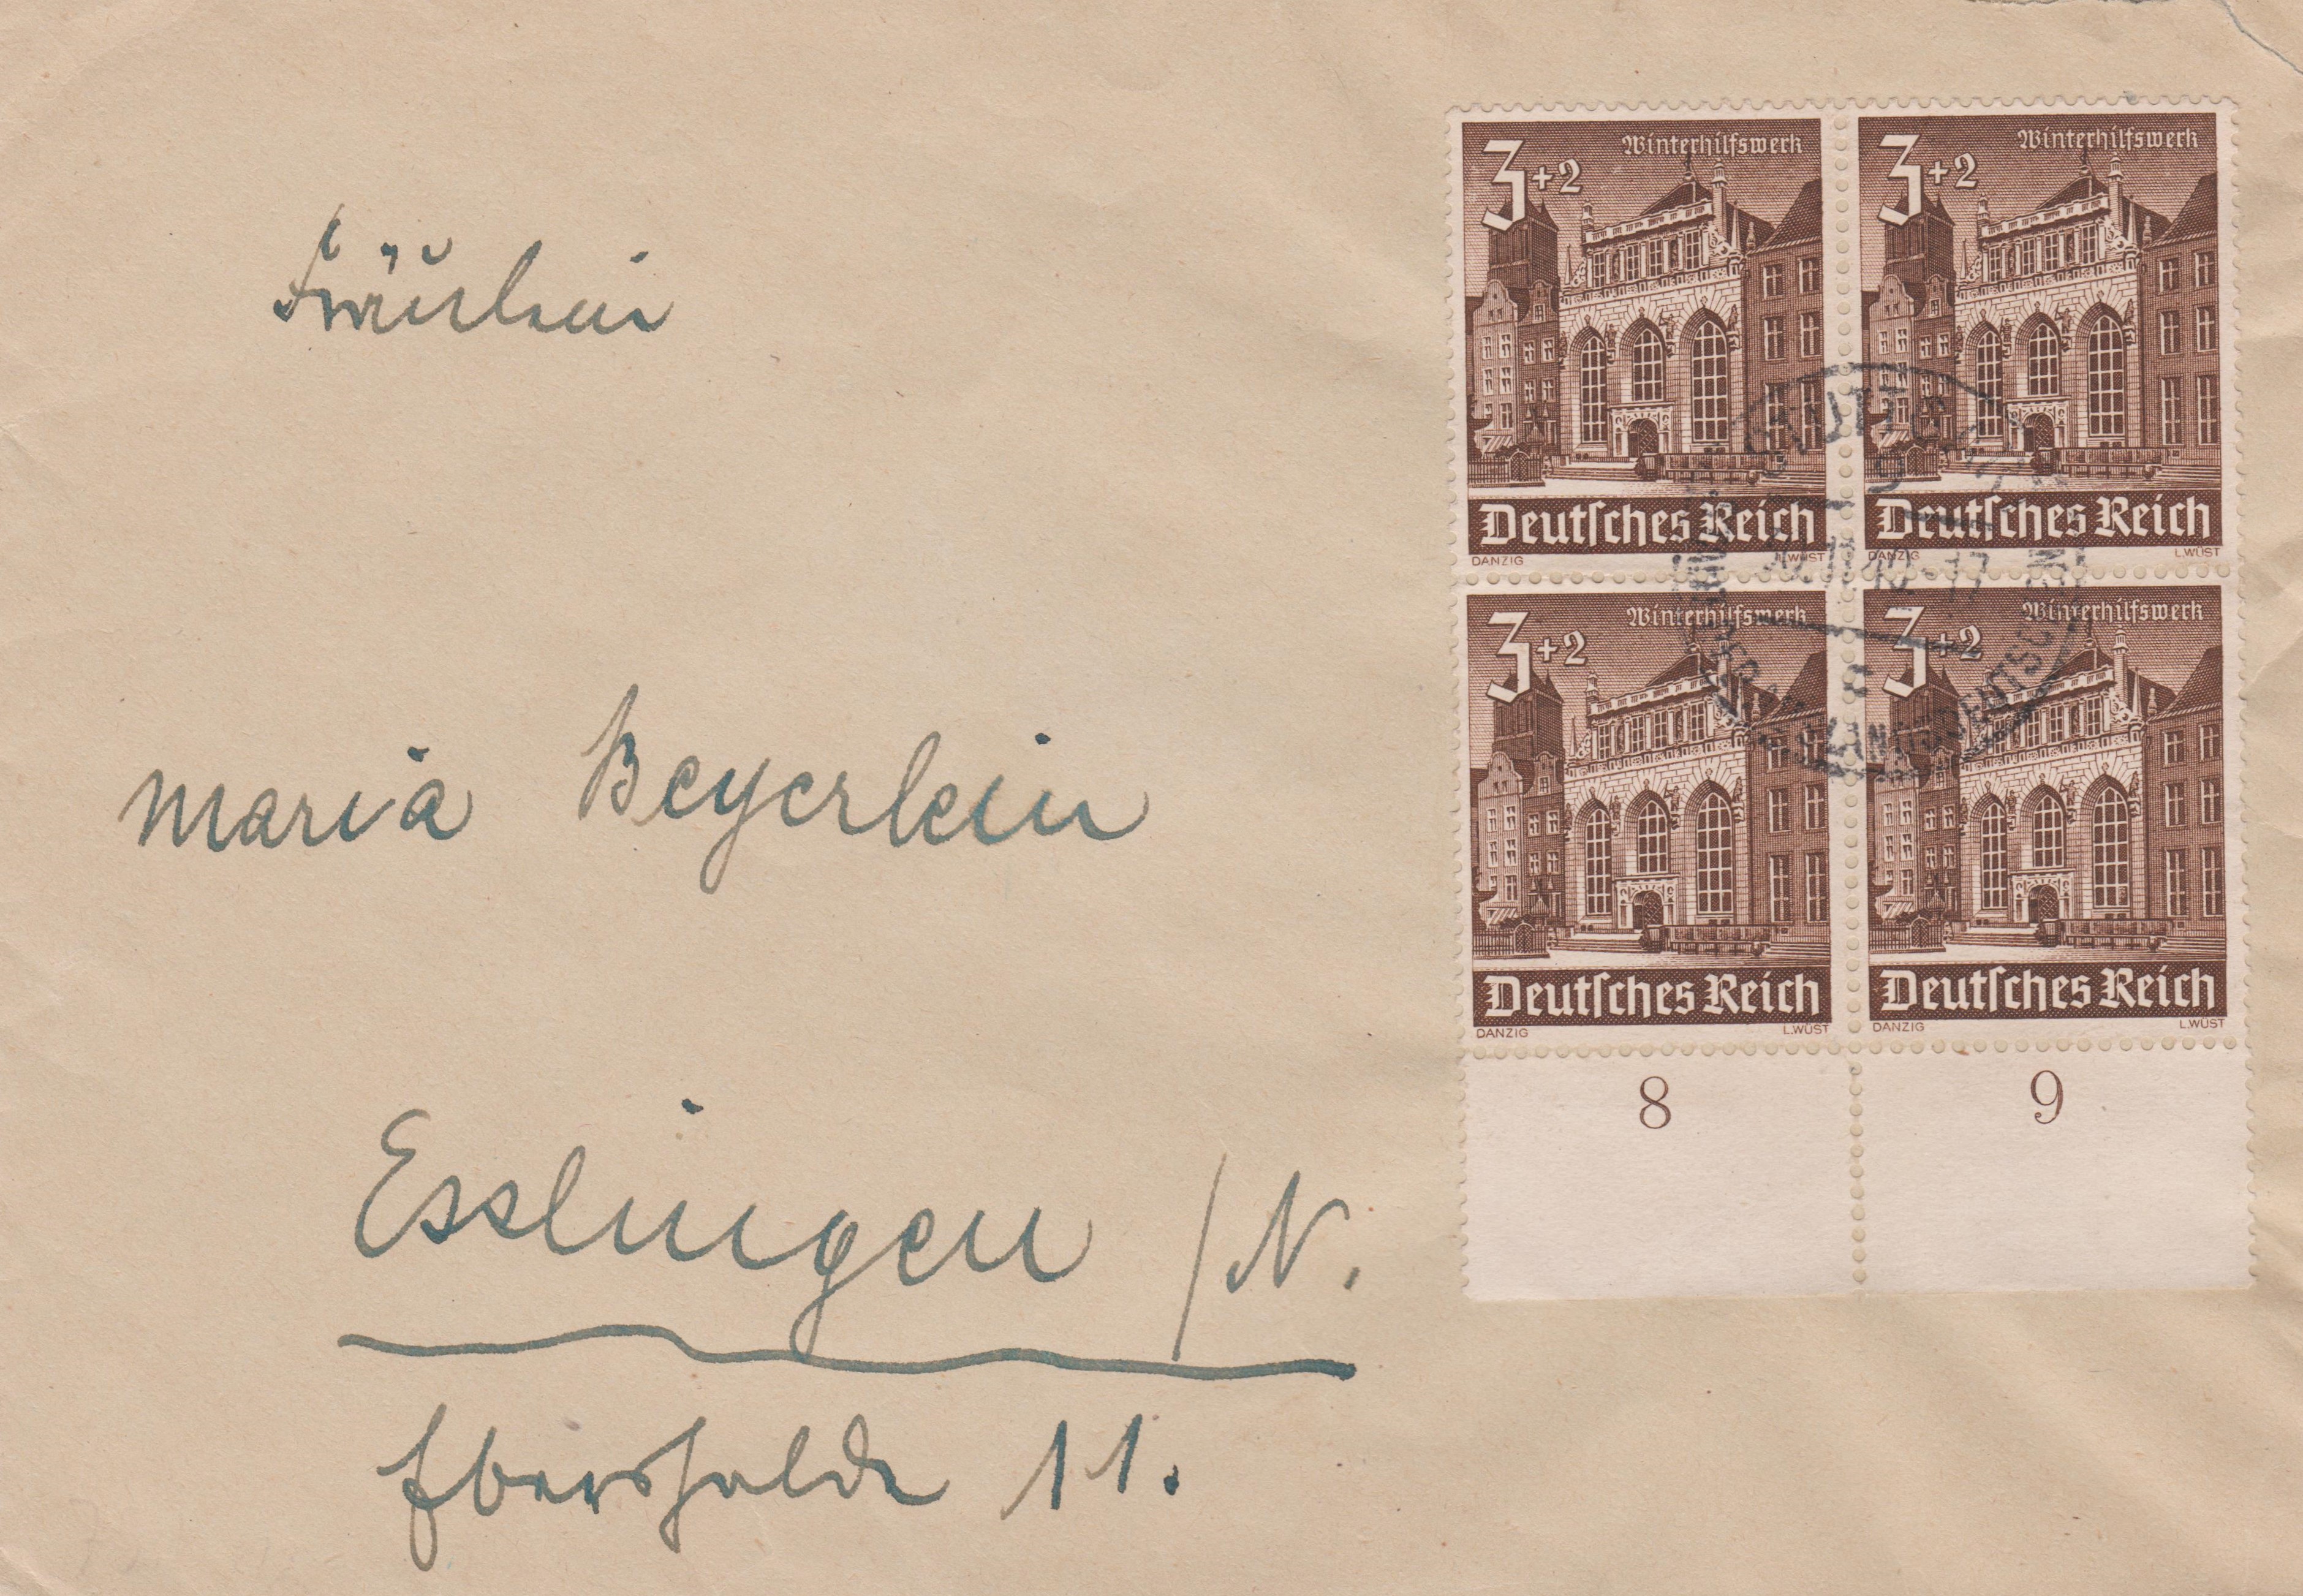 Fräulein
Maria Beyerlein
Esslingen /N.
Ebershalde 11.
3+2 Winterhilfswerk
Deutsches Reich
DANZIG L.WÜST
3+2 Winterhilfswerk
Deutsches Reich
DANZIG L.WÜST
3+2 Winterhilfswerk
Deutsches Reich
DANZIG L.WÜST
3+2 Winterhilfswerk
Deutsches Reich
DANZIG L.WÜST
8 9
STUTTGART
9